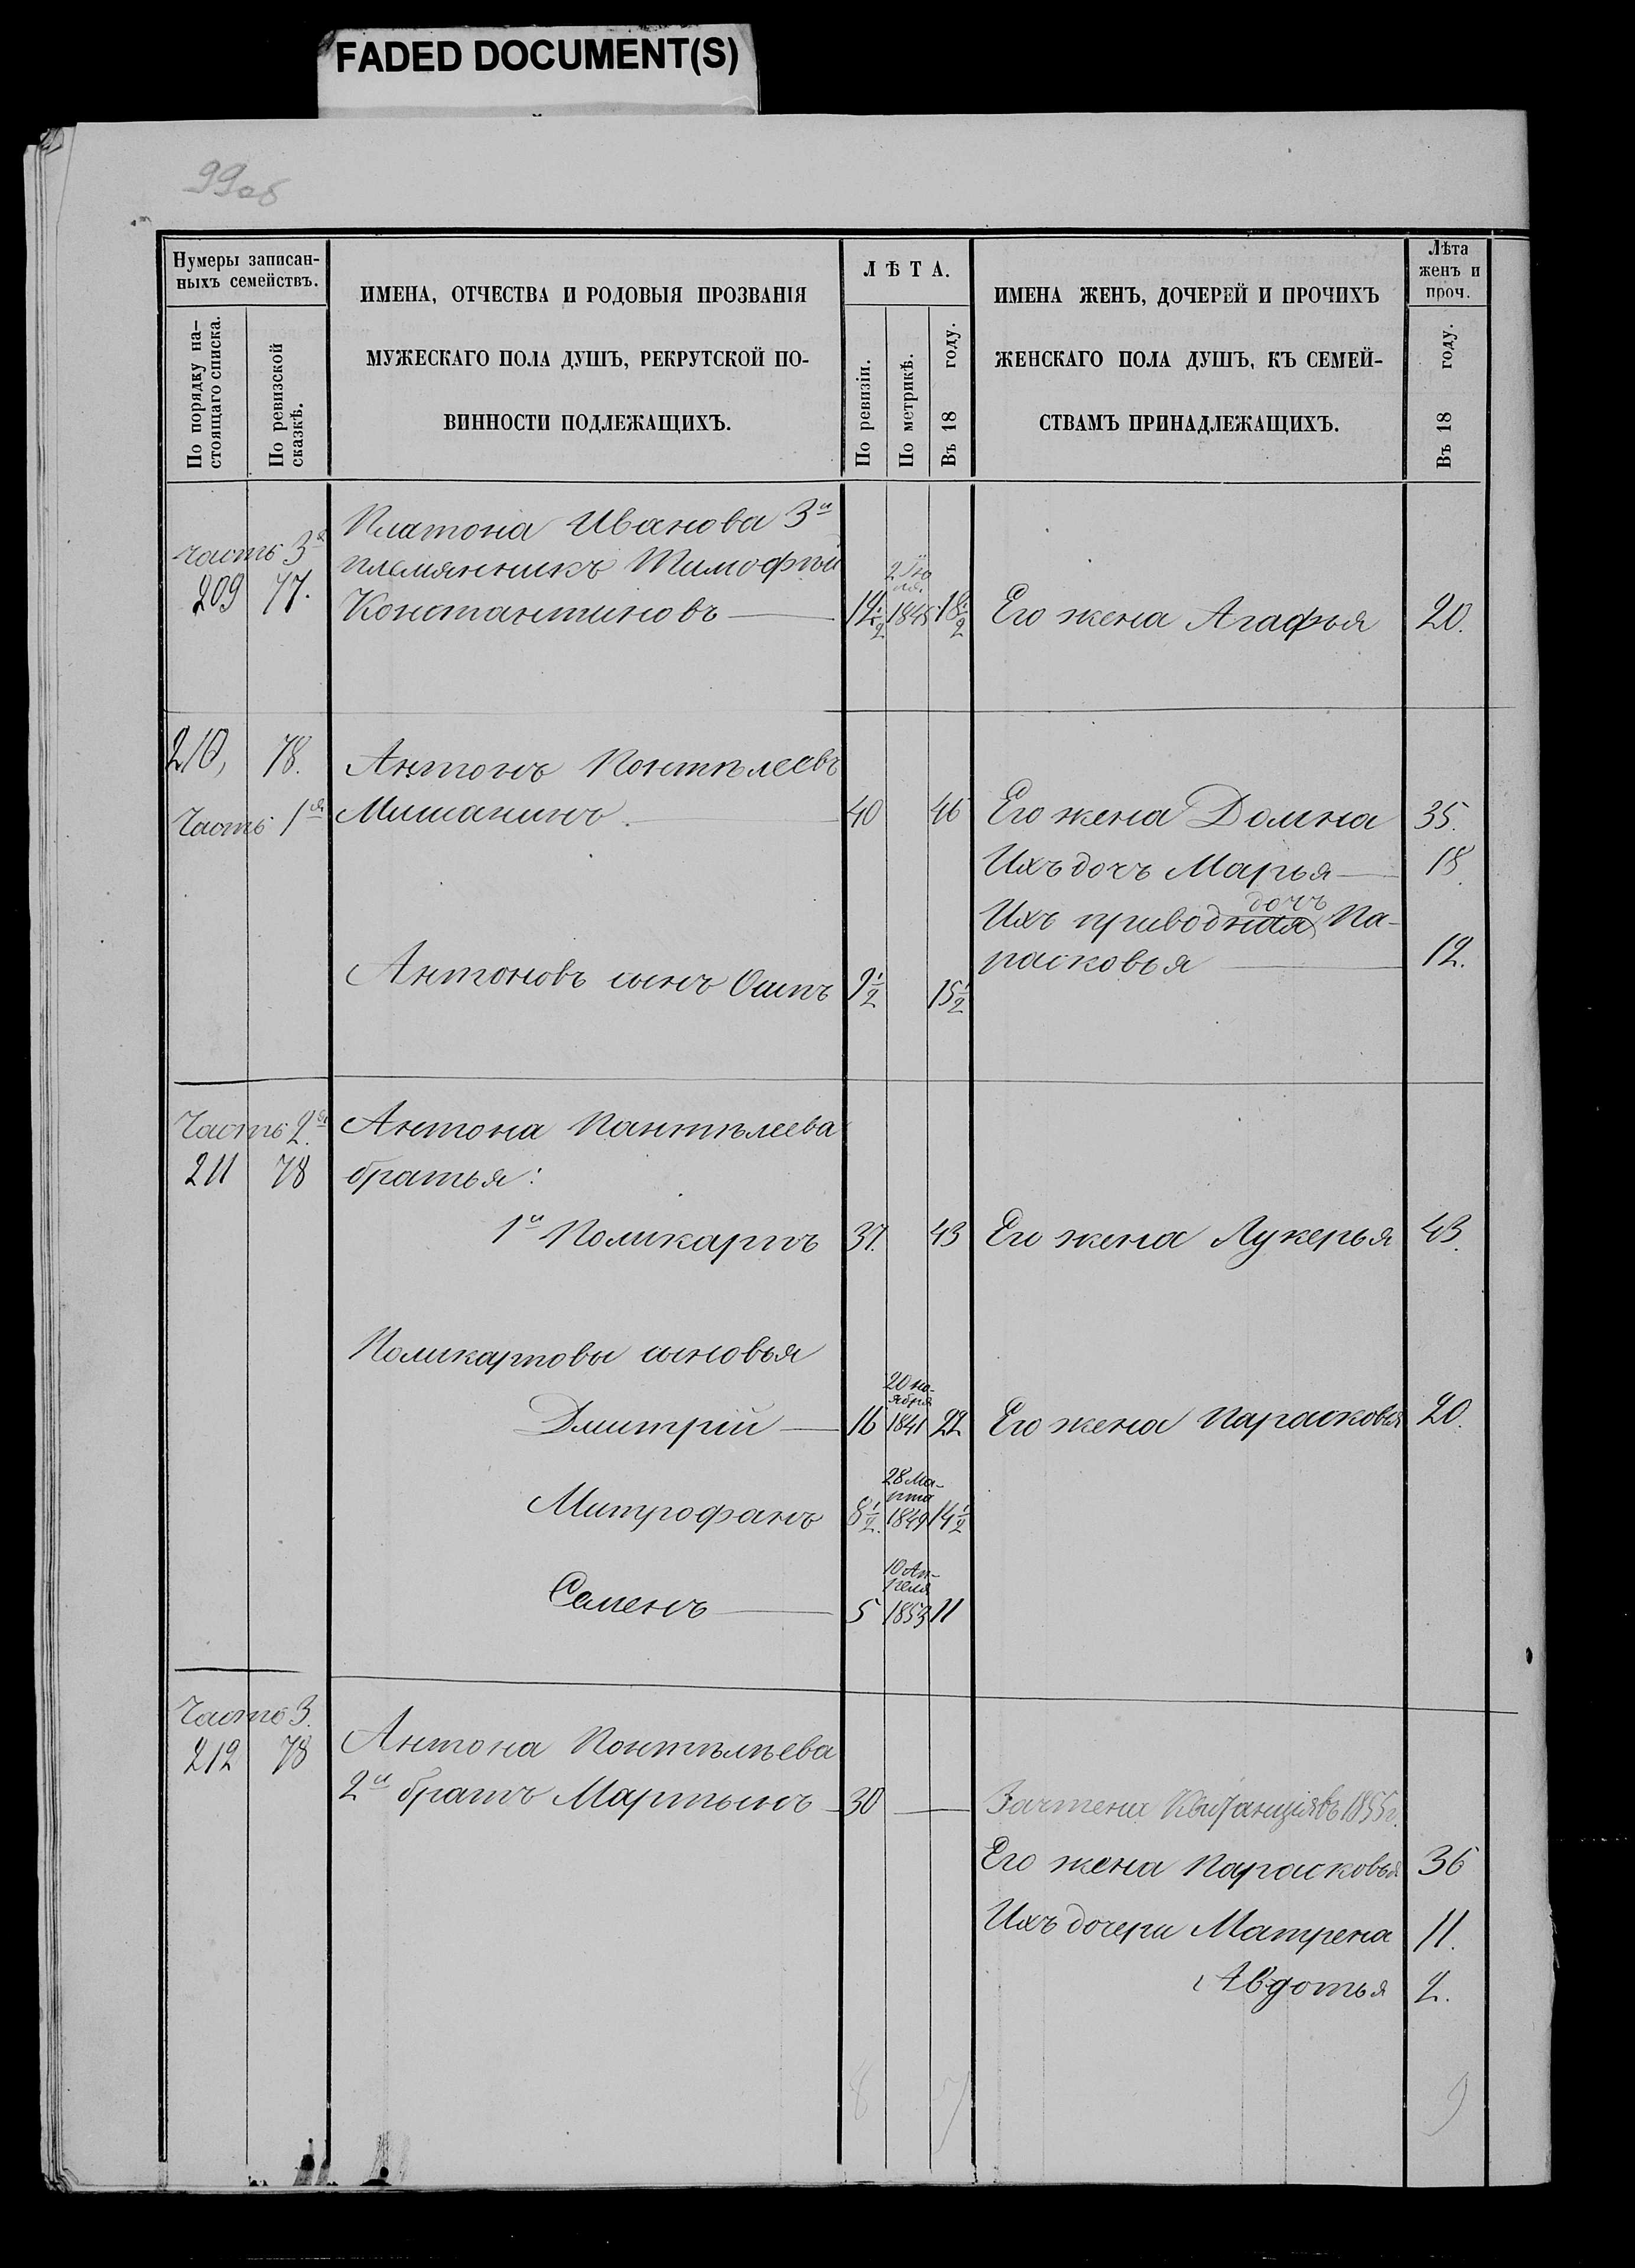 FADED DOCUMENT(S)
99об
Нумеры записан-
ныхъ семействъ.
По порядку на-
стоящаго списка.
По ревизской
сказкѣ.
ИМЕНА, ОТЧЕСТВА И РОДОВЫЯ ПРОЗВАНІЯ
МУЖЕСКАГО ПОЛА ДУШЪ, РЕКРУТСКОЙ ПО-
ВИННОСТИ ПОДЛЕЖАЩИХЪ.
ЛѢТА.
По ревизіи.
По метрикѣ.
Въ 18 году.
ИМЕНА ЖЕНЪ, ДОЧЕРЕЙ И ПРОЧИХЪ
ЖЕНСКАГО ПОЛА ДУШЪ, КЪ СЕМЕЙ-
СТВАМЪ ПРИНАДЛЕЖАЩИХЪ.
Лѣта
женъ и
проч.
Въ 18 году.
Платона Иванова 3й
часть 3я
племянникъ Тимофѣй
209 77.
Константиновъ 1845 18 1/2 Его жена Агафья 20.
210, 78. Антонъ Понтѣлеевъ
Часть 1я Мишанинъ. 40 46 Его жена Домна 35.
Ихъ дочь Марья 18.
дочь
Ихъ приводная Па-
расковья 12.
Антоновъ сынъ Осипъ 9 1/2 15 1/2
Часть 2я Антона Пантѣлеева
211 78 братья:
1й Поликарпъ 37. 43 Его жена Лукерья 43.
Поликарповы сыновья
20 но-
ября
Дмитрій 16 1841 22 Его жена Парасковья 20.
28 Ма-
рта
Митрофанъ 8 1/2. 1849 14 1/2
10 Ап-
реля
Семенъ 5 1853 11
Часть 3.
212 78 Антона Понтѣлѣева
2й братъ Мартынъ 30 Зачтена Квитанція въ 1855г.
Его жена Парасковья 36
Ихъ дочери Матрена 11.
Авдотья 2.
8 7 9